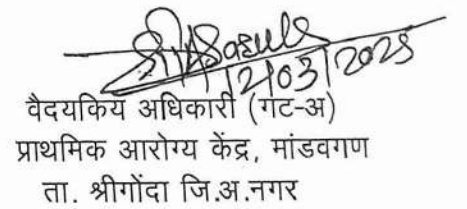 12/03/2025
वैदयकिय अधिकारी (गट-अ)
प्राथमिक आरोग्य केंद्र, मांडवगण
ता. श्रीगोंदा जि.अ.नगर